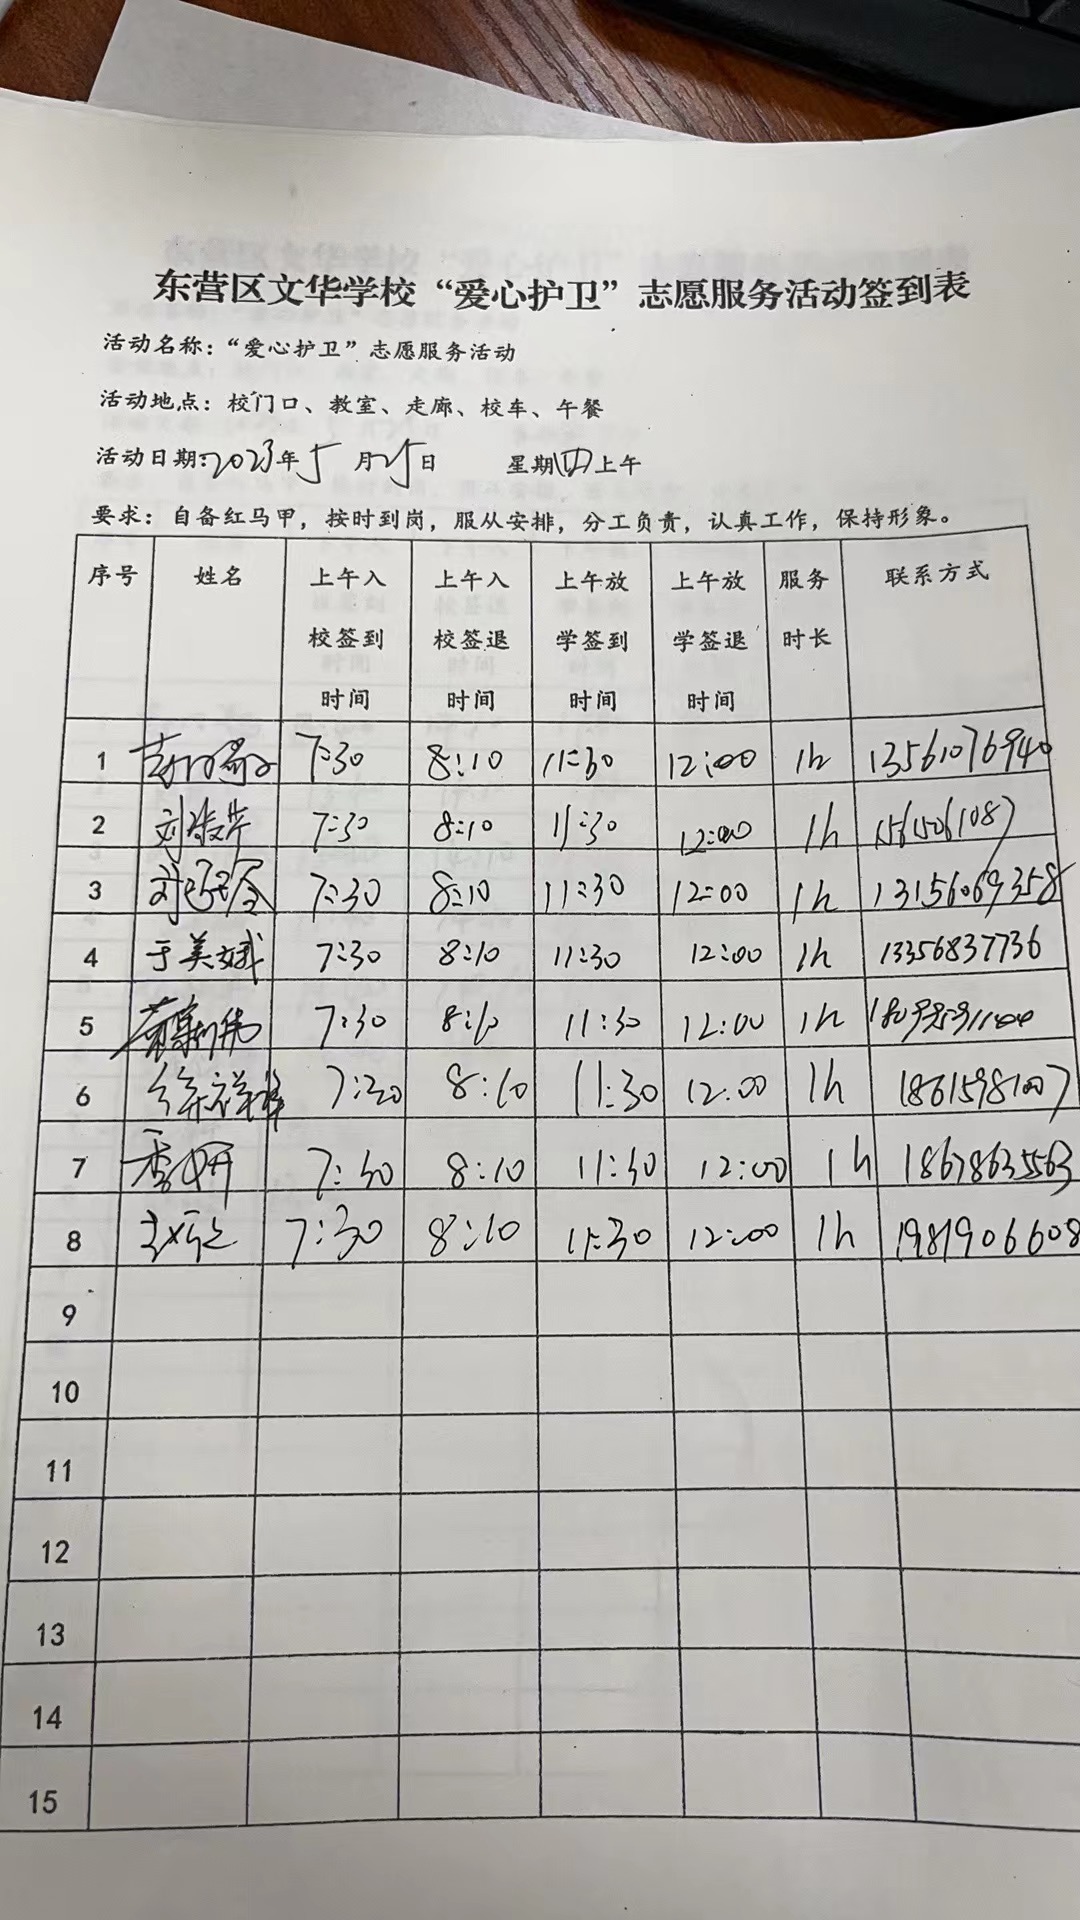 东营区文华学校“爱心护卫”志愿服务活动签到表
活动名称：“爱心护卫”志愿服务活动
活动地点：校门口、教室、走廊、校车、午餐
活动日期：2023年5月25日 星期四上午
要求：自备红马甲，按时到岗，服从安排，分工负责，认真工作，保持形象。
序号 姓名 上午入校签到时间 上午入校签退时间 上午放学签到时间 上午放学签退时间 服务时长 联系方式
1 7:30 8:10 11:30 12:00 1h 13561076940
2 刘 7:30 8:10 11:30 12:00 1h
3 7:30 8:10 11:30 12:00 1h 13156069358
4 于美娥 7:30 8:10 11:30 12:00 1h 13356837736
5 7:30 8:10 11:30 12:00 1h
6 徐祥 7:30 8:10 11:30 12:00 1h 18615981007
7 季妍 7:30 8:10 11:30 12:00 1h 18678635563
8 赵 7:30 8:10 11:30 12:00 1h 1981906608
9
10
11
12
13
14
15